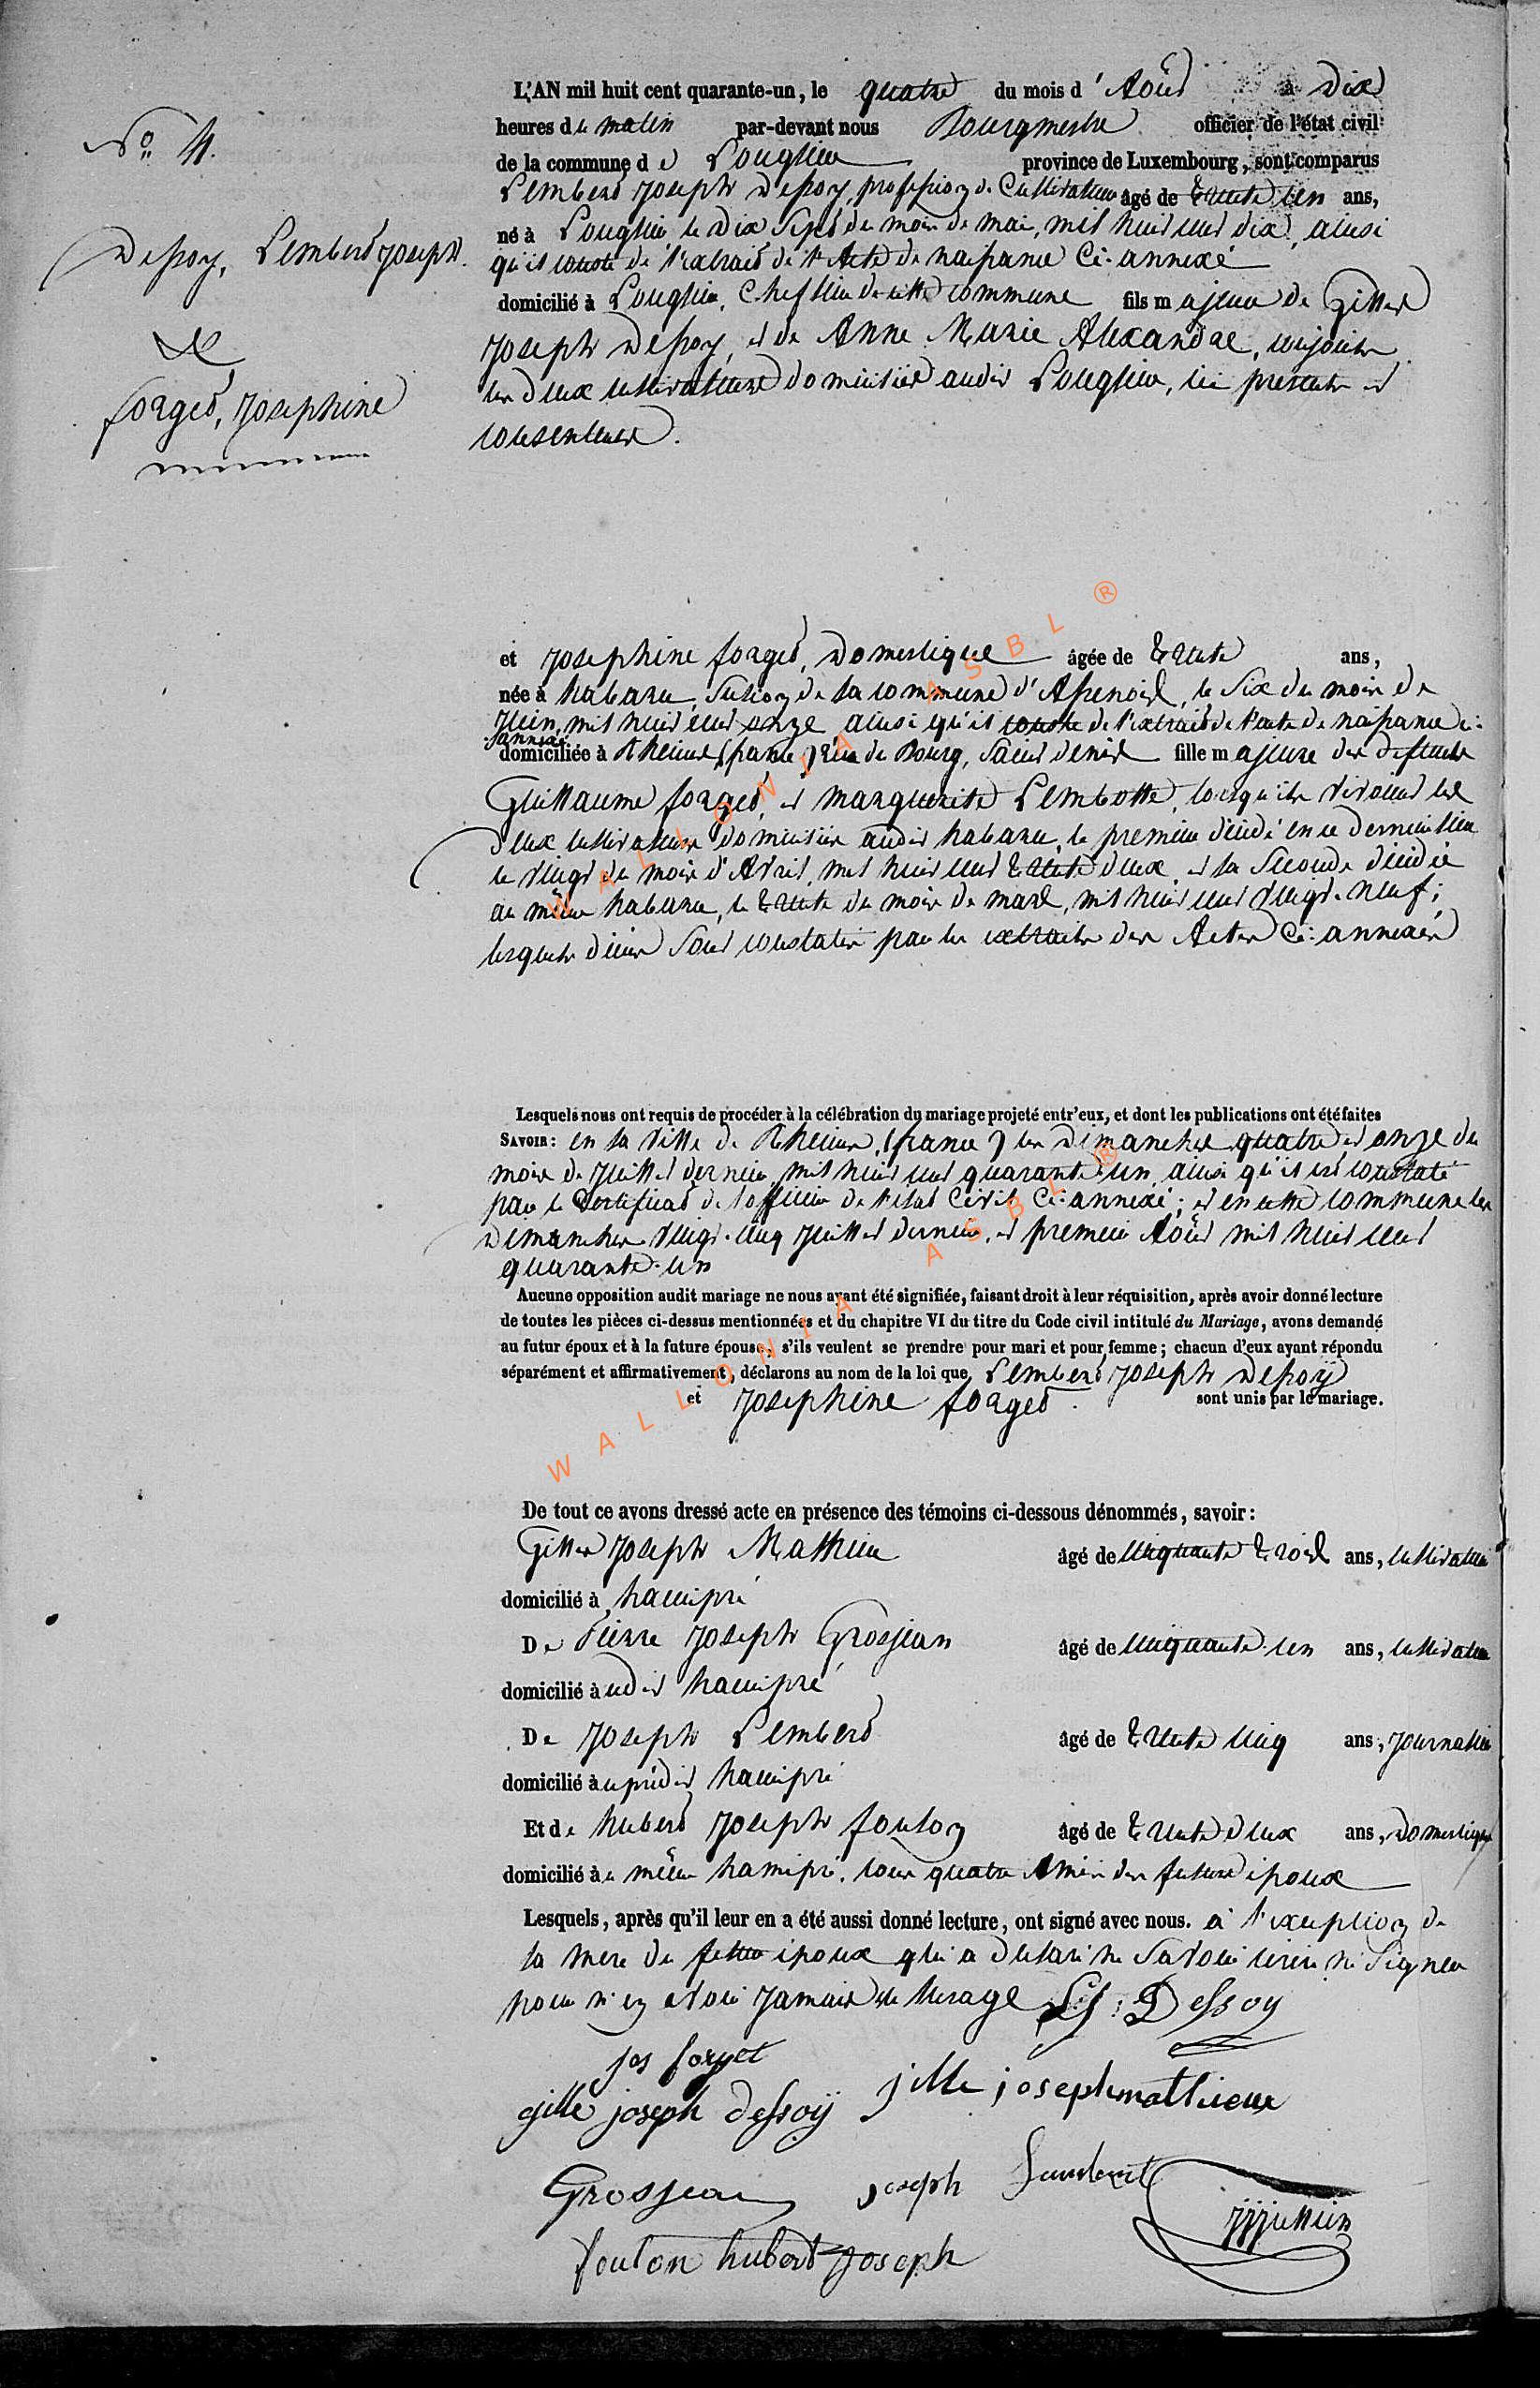 L'AN mil huit cent quarante-un, le quatre du mois d'Août à Dix
heures du matin par-devant nous Bourgmestre officier de l'état civil
de la commune de Longlier province de Luxembourg, sont comparus
Lembert Joseph Dessoy, profession de Cultivateur âgé de trente un ans,
né à Longlier le Dix Sept du mois de mai, mil huit cent dix, ainsi
qu'il conste de l'extrait de l'Acte de naissance Ci-annexé
domicilié à Longlier, Chef lieu de cette commune fils majeur de Gille
Joseph Dessoy, et de Anne Marie Alexandre, conjoints
les deux cultivateurs domiciliés audit Longlier, ici présents et
consentans.
No. 4.
Dessoy, Lembert Joseph.
&
forget, Josephine
et Josephine forget, Domestique âgée de trente ans,
née à habaru, Section de la commune d'Assenois, le Six du mois de
Juin, mil huit cent onze ainsi qu'il conste de l'extrait de l'acte de naissance ci-
annexé
domiciliée à Rheims (france) rue du Bourg, Saint denis fille majeure des défunts
Guillaume forget, et marguerite Lembotte, lorsqu'ils vivoient les
deux cultivateurs domiciliés audit habaru, le premier décédé en ce dernier lieu
le vingt du mois d'Avril, mil huit cent trente deux, et la Seconde décédée
au même habaru, le trente du mois de mars, mil huit cent vingt-neuf;
lesquels décès sont constatés par les extraits des Actes Ci-annexés
Lesquels nous ont requis de procéder à la célébration du mariage projeté entr'eux, et dont les publications ont été faites
SAVOIR: en la Ville de Rheims, (france) les Dimanches quatre et onze du
mois de Juillet dernier, mil huit cent quarante-un, ainsi qu'il est constaté
par le Certificat de l'officier de l'état Civil Ci-annexé; et en cette commune les
Dimanches vingt-cinq Juillet dernier, et premier Août mil huit cent
quarante-un
Aucune opposition audit mariage ne nous ayant été signifiée, faisant droit à leur réquisition, après avoir donné lecture
de toutes les pièces ci-dessus mentionnées et du chapitre VI du titre du Code civil intitulé du Mariage, avons demandé
au futur époux et à la future épouse, s'ils veulent se prendre pour mari et pour femme; chacun d'eux ayant répondu
séparément et affirmativement, déclarons au nom de la loi que Lembert Joseph Dessoÿ
et Josephine forget. sont unis par le mariage.
De tout ce avons dressé acte en présence des témoins ci-dessous dénommés, savoir:
Gille Joseph Mathieu âgé de cinquante trois ans, cultivateur
domicilié à hamipré
De Pierre Joseph Grosjean âgé de cinquante-un ans, cultivateur
domicilié audit hamipré
De Joseph Lembert âgé de trente cinq ans, Journalier
domicilié au prédit hamipré
Et de hubert Joseph foulon âgé de trente deux ans, Domestique
domicilié au même hamipré. tous quatre Amis des futurs époux
Lesquels, après qu'il leur en a été aussi donné lecture, ont signé avec nous. à l'exception de
la mere du futur époux qui a déclaré ne Savoir écrire ni Signer
pour n'en avoir Jamais eu l'usage LJ: Dessoy
Jos forget
gille joseph dessoÿ jille joseph mathieux
Grosjean joseph Lambert
JJJullien
foulon hubert joseph
WALLONIA ASBL ®
WALLONIA ASBL ®